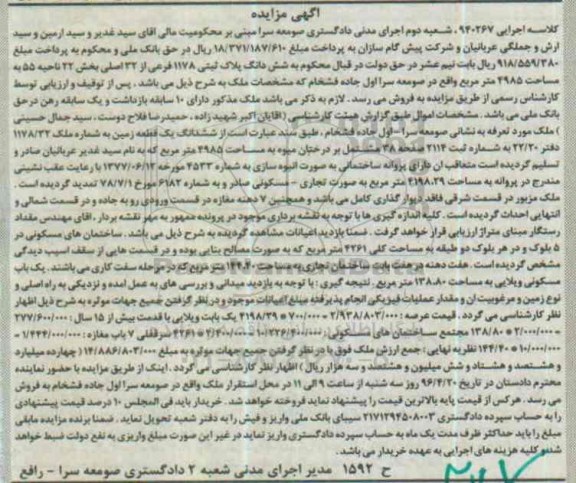 آگهی مزایده
کلاسه اجرایی ۹۴۰۲۶۷ ، شعبه دوم اجرای مدنی دادگستری صومعه سرا مبنی بر محکومیت مالی آقای سید غدیر و سید آرمین و سید
ارش و جملگی عربانیان و شرکت پیش گام سازان به پرداخت مبلغ ۱۸/۳۷۱/۱۸۷/۶۱۰ ریال در حق بانک ملی و محکوم به پرداخت مبلغ
۹۱۸/۵۵۹/۳۸۰ ریال بابت نیم عشر در حق دولت در قبال محکوم به شش دانگ پلاک ثبتی ۱۱۷۸ فرعی از ۳۲ اصلی بخش ۲۲ ناحیه ۵۵ به
مساحت ۴۹۸۵ متر مربع واقع در صومعه سرا اول جاده فشخام که مشخصات ملک به شرح ذیل می باشد . پس از توقیف و ارزیابی توسط
کارشناس رسمی از طریق مزایده به فروش می رسد . لازم به ذکر می باشد ملک مذکور دارای ۱۰ سابقه بازداشت و یک سابقه رهن در حق
بانک ملی می باشد . مشخصات اموال طبق گزارش هیئت کارشناسی (آقایان اکبر شهیدزاده ، حمیدرضا فلاح دوست ، سید جمال حسینی
) ملک مورد تعرفه به نشانی صومعه سرا – اول جاده فشخام ، طبق سند عبارت است از ششدانگ یک قطعه زمین به شماره ملک ۱۱۷۸/۳۲
دفتر ۲۲/۲۰ به شماره ثبت ۲۱۱۴ صفحه ۳۸ مشتمل بر درختان میوه به مساحت ۴۹۸۵ متر مربع که به نام سید غدیر عربانیان صادر و
تسلیم گردیده است متعاقب آن دارای پروانه ساختمانی به صورت انبوه سازی به شماره ۴۵۳۳ مورخه ۱۳۷۷/۰۶/۱۲ با رعایت عقب نشینی
مندرج در پروانه به مساحت ۴۱۹۸.۳۹ متر مربع به صورت تجاری – مسکونی صادر و به شماره ۶۱۸۲ مورخ ۷۸/۷/۱ تمدید گردیده است .
ملک مزبور در قسمت شرقی فاقد دیوار گذاری کامل می باشد و همچنین ۷ دهنه مغازه در قسمت ورودی رو به جاده و در قسمت شمالی و
انتهایی احداث گردیده است . کلیه اندازه گیری ها با توجه به نقشه برداری موجود در پرونده ممهور به مهر نقشه بردار ، آقای مهندس مقداد
رستگار مبنای متراژ ارزیابی قرار خواهد گرفت . ضمنا بازدید اعیانات مشاهده گردیده به شرح ذیل می باشد . ساختمان های مسکونی در
۵ بلوک و در هر بلوک دو طبقه به مساحت کلی ۴۲۶۱ متر مربع که به صورت مصالح بنایی بوده و در قسمت هایی از سقف آسیب دیدگی
مشخص گردیده است . هفت دهنه در هفت باب ساختمان تجاری به مساحت ۱۴۴.۴۰ متر مربع که در مرحله سفت کاری می باشند . یک باب
مسکونی ویلایی به مساحت ۱۳۸.۸۰ متر مربع . نتیجه گیری : با توجه به بازدید میدانی و بررسی های به عمل آمده و نزدیکی به راه اصلی و
نوع زمین و مرغوبیت آن و مقدار عملیات فیزیکی انجام پذیرفته مبلغ اعیانات موجود و در نظر گرفتن جمیع جهات موثره به شرح ذیل اظهار
نظر کارشناسی می گردد . قیمت عرصه : ۲/۹۳۸/۸۰۳/۰۰۰ = ۷۰۰/۰۰۰ * ۴۱۹۸/۳۹ یک بابت ویلایی با قدمت بیش از ۱۵ سال : ۲۷۷/۶۰۰/۰۰۰
= ۲/۰۰۰/۰۰۰ * ۱۳۸/۸۰ مجتمع ساختمان های مسکونی ۱۰/۲۲۶/۴۰۰/۰۰۰ = ۲/۴۰۰/۰۰۰ * ۴۲۶۱ سرقفلی ۷ باب مغازه : ۱/۴۴۴/۰۰۰/۰۰۰ =
۱۰/۰۰۰/۰۰۰ * ۱۴۴/۴۰ نظریه نهایی : جمع ارزش ملک فوق با در نظر گرفتن جمیع جهات موثره به مبلغ ۱۴/۸۸۶/۸۰۳/۰۰۰ ( چهارده میلیارد
و هشتصد و هشتاد و شش میلیون و هشتصد و سه هزار ریال ) اظهار نظر کارشناسی می گردد . اینک از طریق مزایده با حضور نماینده
محترم دادستان در تاریخ ۹۶/۴/۲۰ روز سه شنبه از ساعت ۹ الی ۱۱ در محل استقرار ملک واقع در صومعه سرا اول جاده فشخام به فروش
می رسد . هرکس از قیمت پایه بالاترین قیمت را پیشنهاد نماید فروخته خواهد شد . خریدار باید فی المجلس ۱۰ درصد قیمت پیشنهادی
را به حساب سپرده دادگستری ۲۱۷۱۲۹۴۵۰۸۰۰۳ سیبای بانک ملی واریز و فیش را به دفتر شعبه تحویل نماید . ضمنا برنده مزایده مابقی
مبلغ را باید حداکثر ظرف مدت یک ماه به حساب سپرده دادگستری واریز نماید در غیر این صورت مبلغ واریزی به نفع دولت ضبط خواهد
شد و کلیه هزینه های اجرایی به عهده خریدار می باشد .
ح ۱۵۹۲ مدیر اجرای مدنی شعبه ۲ دادگستری صومعه سرا – رافع